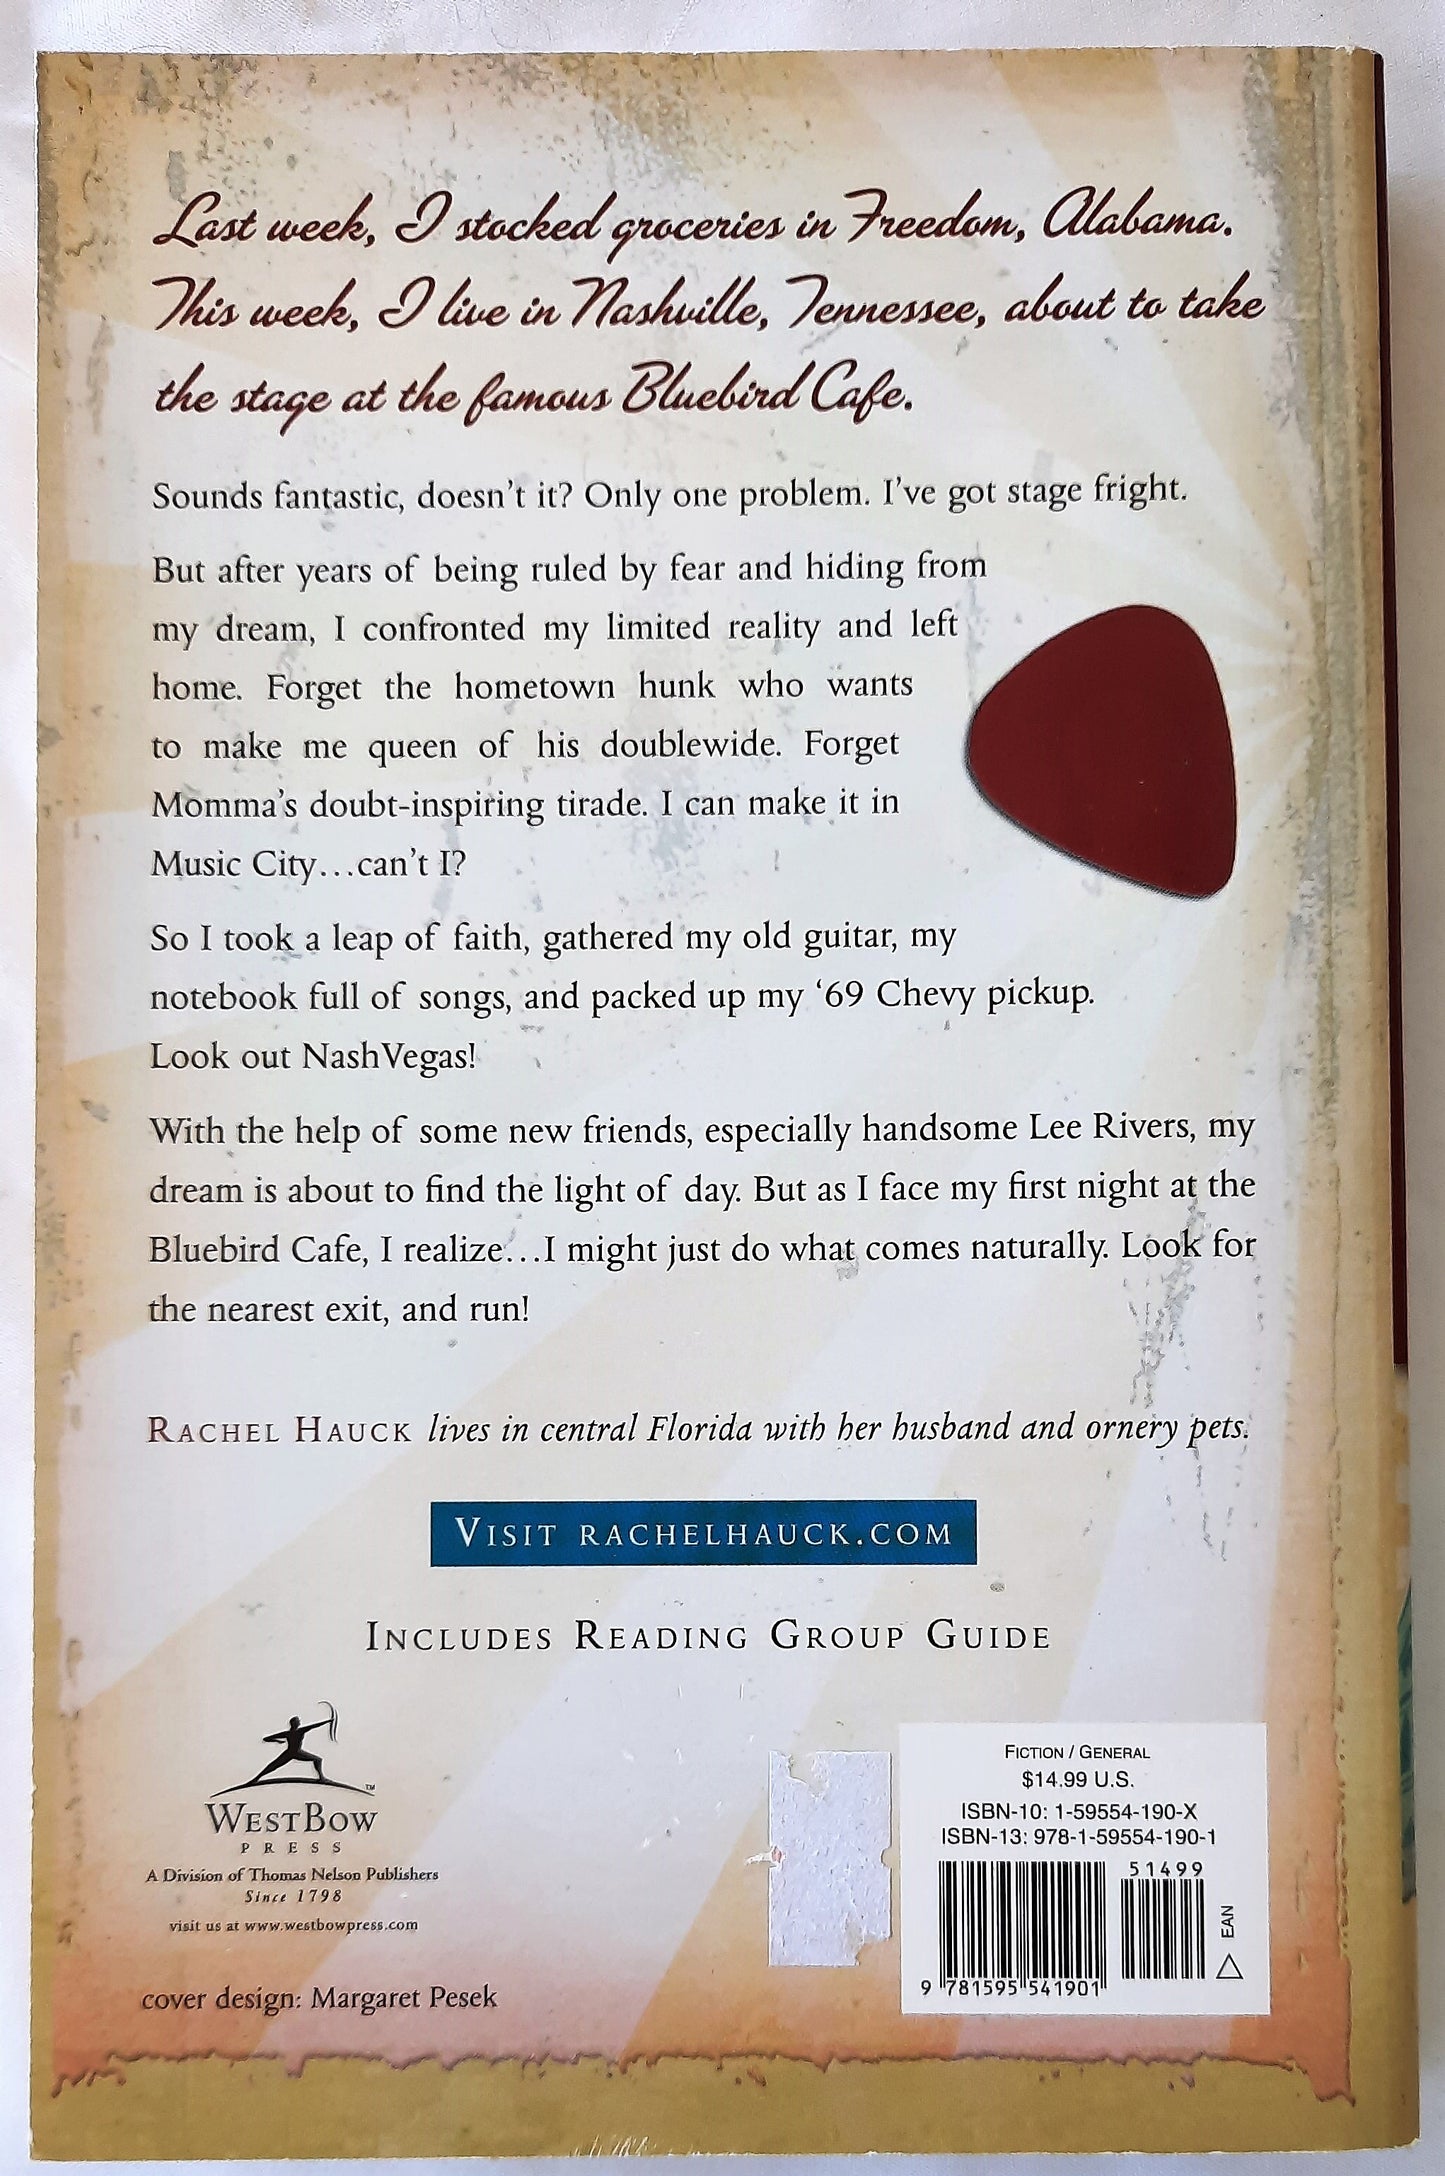 Last week, I stocked groceries in Freedom, Alabama.
This week, I live in Nashville, Tennessee, about to take
the stage at the famous Bluebird Cafe.
Sounds fantastic, doesn't it? Only one problem. I've got stage fright.
But after years of being ruled by fear and hiding from
my dream, I confronted my limited reality and left
home. Forget the hometown hunk who wants
to make me queen of his doublewide. Forget
Momma's doubt-inspiring tirade. I can make it in
Music City...can't I?
So I took a leap of faith, gathered my old guitar, my
notebook full of songs, and packed up my '69 Chevy pickup.
Look out NashVegas!
With the help of some new friends, especially handsome Lee Rivers, my
dream is about to find the light of day. But as I face my first night at the
Bluebird Cafe, I realize...I might just do what comes naturally. Look for
the nearest exit, and run!
RACHEL HAUCK lives in central Florida with her husband and ornery pets.
VISIT RACHELHAUCK.COM
INCLUDES READING GROUP GUIDE
WESTBOW™
PRESS
A Division of Thomas Nelson Publishers
Since 1798
visit us at www.westbowpress.com
cover design: Margaret Pesek
FICTION / GENERAL
$14.99 U.S.
ISBN-10: 1-59554-190-X
ISBN-13: 978-1-59554-190-1
51499
EAN
9 781595 541901